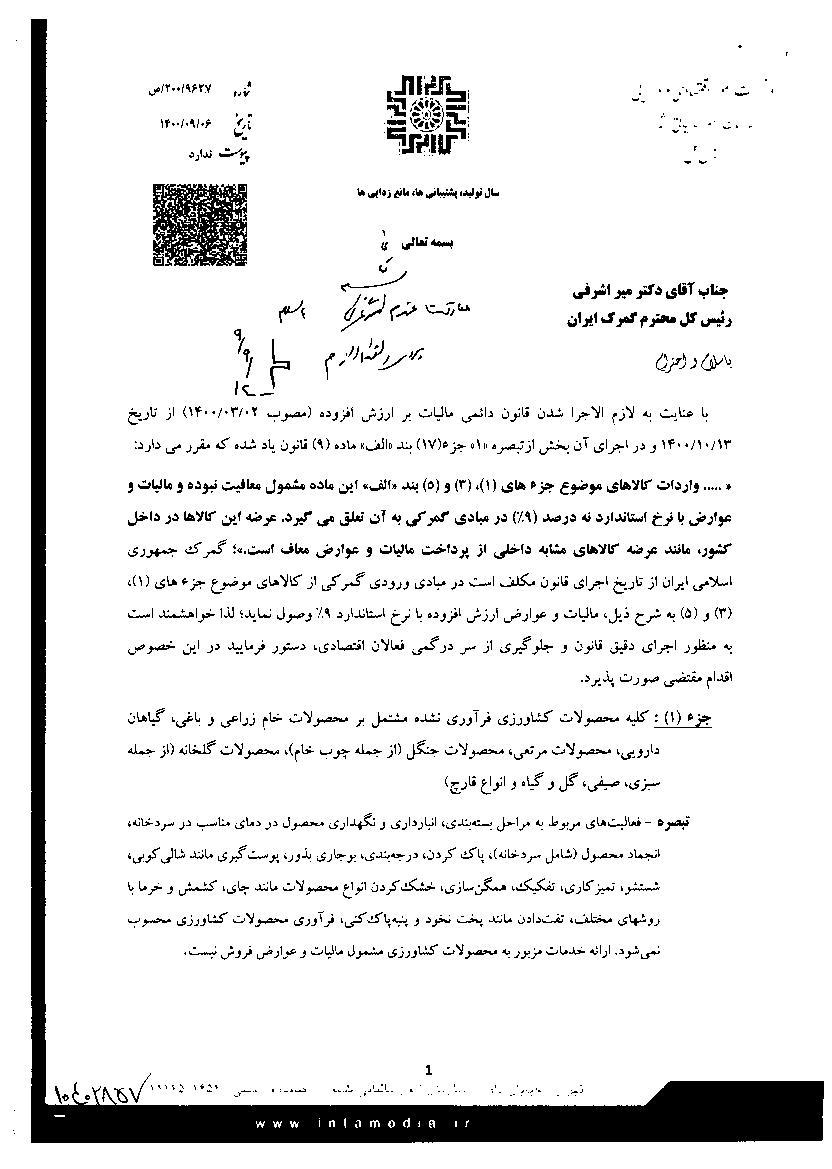 شماره ۲۰۰/۹۶۲۷/ص
تاریخ ۱۴۰۰/۰۹/۰۶
پیوست ندارد
سال تولید، پشتیبانی ها، مانع زدایی ها
بسمه تعالی
جناب آقای دکتر میر اشرفی
رئیس کل محترم گمرک ایران
با سلام و احترام
با عنایت به لازم الاجرا شدن قانون دائمی مالیات بر ارزش افزوده (مصوب ۱۴۰۰/۰۳/۰۲) از تاریخ
۱۴۰۰/۱۰/۱۳ و در اجرای آن بخش از تبصره «۱» جزء (۱۷) بند «الف» ماده (۹) قانون یاد شده که مقرر می دارد:
« ..... واردات کالاهای موضوع جزء های (۱)، (۳) و (۵) بند «الف» این ماده مشمول معافیت نبوده و مالیات و
عوارض با نرخ استاندارد نه درصد (۹٪) در مبادی گمرکی به آن تعلق می گیرد. عرضه این کالاها در داخل
کشور، مانند عرضه کالاهای مشابه داخلی از پرداخت مالیات و عوارض معاف است.»؛ گمرک جمهوری
اسلامی ایران از تاریخ اجرای قانون مکلف است در مبادی ورودی گمرکی از کالاهای موضوع جزء های (۱)،
(۳) و (۵) به شرح ذیل، مالیات و عوارض ارزش افزوده با نرخ استاندارد ۹٪ وصول نماید؛ لذا خواهشمند است
به منظور اجرای دقیق قانون و جلوگیری از سر درگمی فعالان اقتصادی، دستور فرمایید در این خصوص
اقدام مقتضی صورت پذیرد.
جزء (۱) : کلیه محصولات کشاورزی فرآوری نشده مشتمل بر محصولات خام زراعی و باغی، گیاهان
دارویی، محصولات مرتعی، محصولات جنگل (از جمله چوب خام)، محصولات گلخانه (از جمله
سبزی، صیفی، گل و گیاه و انواع قارچ)
تبصره - فعالیت‌های مربوط به مراحل بسته‌بندی، انبارداری و نگهداری محصول در دمای مناسب در سردخانه،
انجماد محصول (شامل سردخانه)، پاک کردن، درجه‌بندی، بوجاری بذور، پوست‌گیری مانند شالی‌کوبی،
شستشو، تمیزکاری، تفکیک، همگن‌سازی، خشک‌کردن انواع محصولات مانند چای، کشمش و خرما با
روشهای مختلف، تفت‌دادن مانند پخت نخود و پنبه‌پاک‌کنی، فرآوری محصولات کشاورزی محسوب
نمی‌شود. ارائه خدمات مزبور به محصولات کشاورزی مشمول مالیات و عوارض فروش نیست.
1
www.intamedia.ir